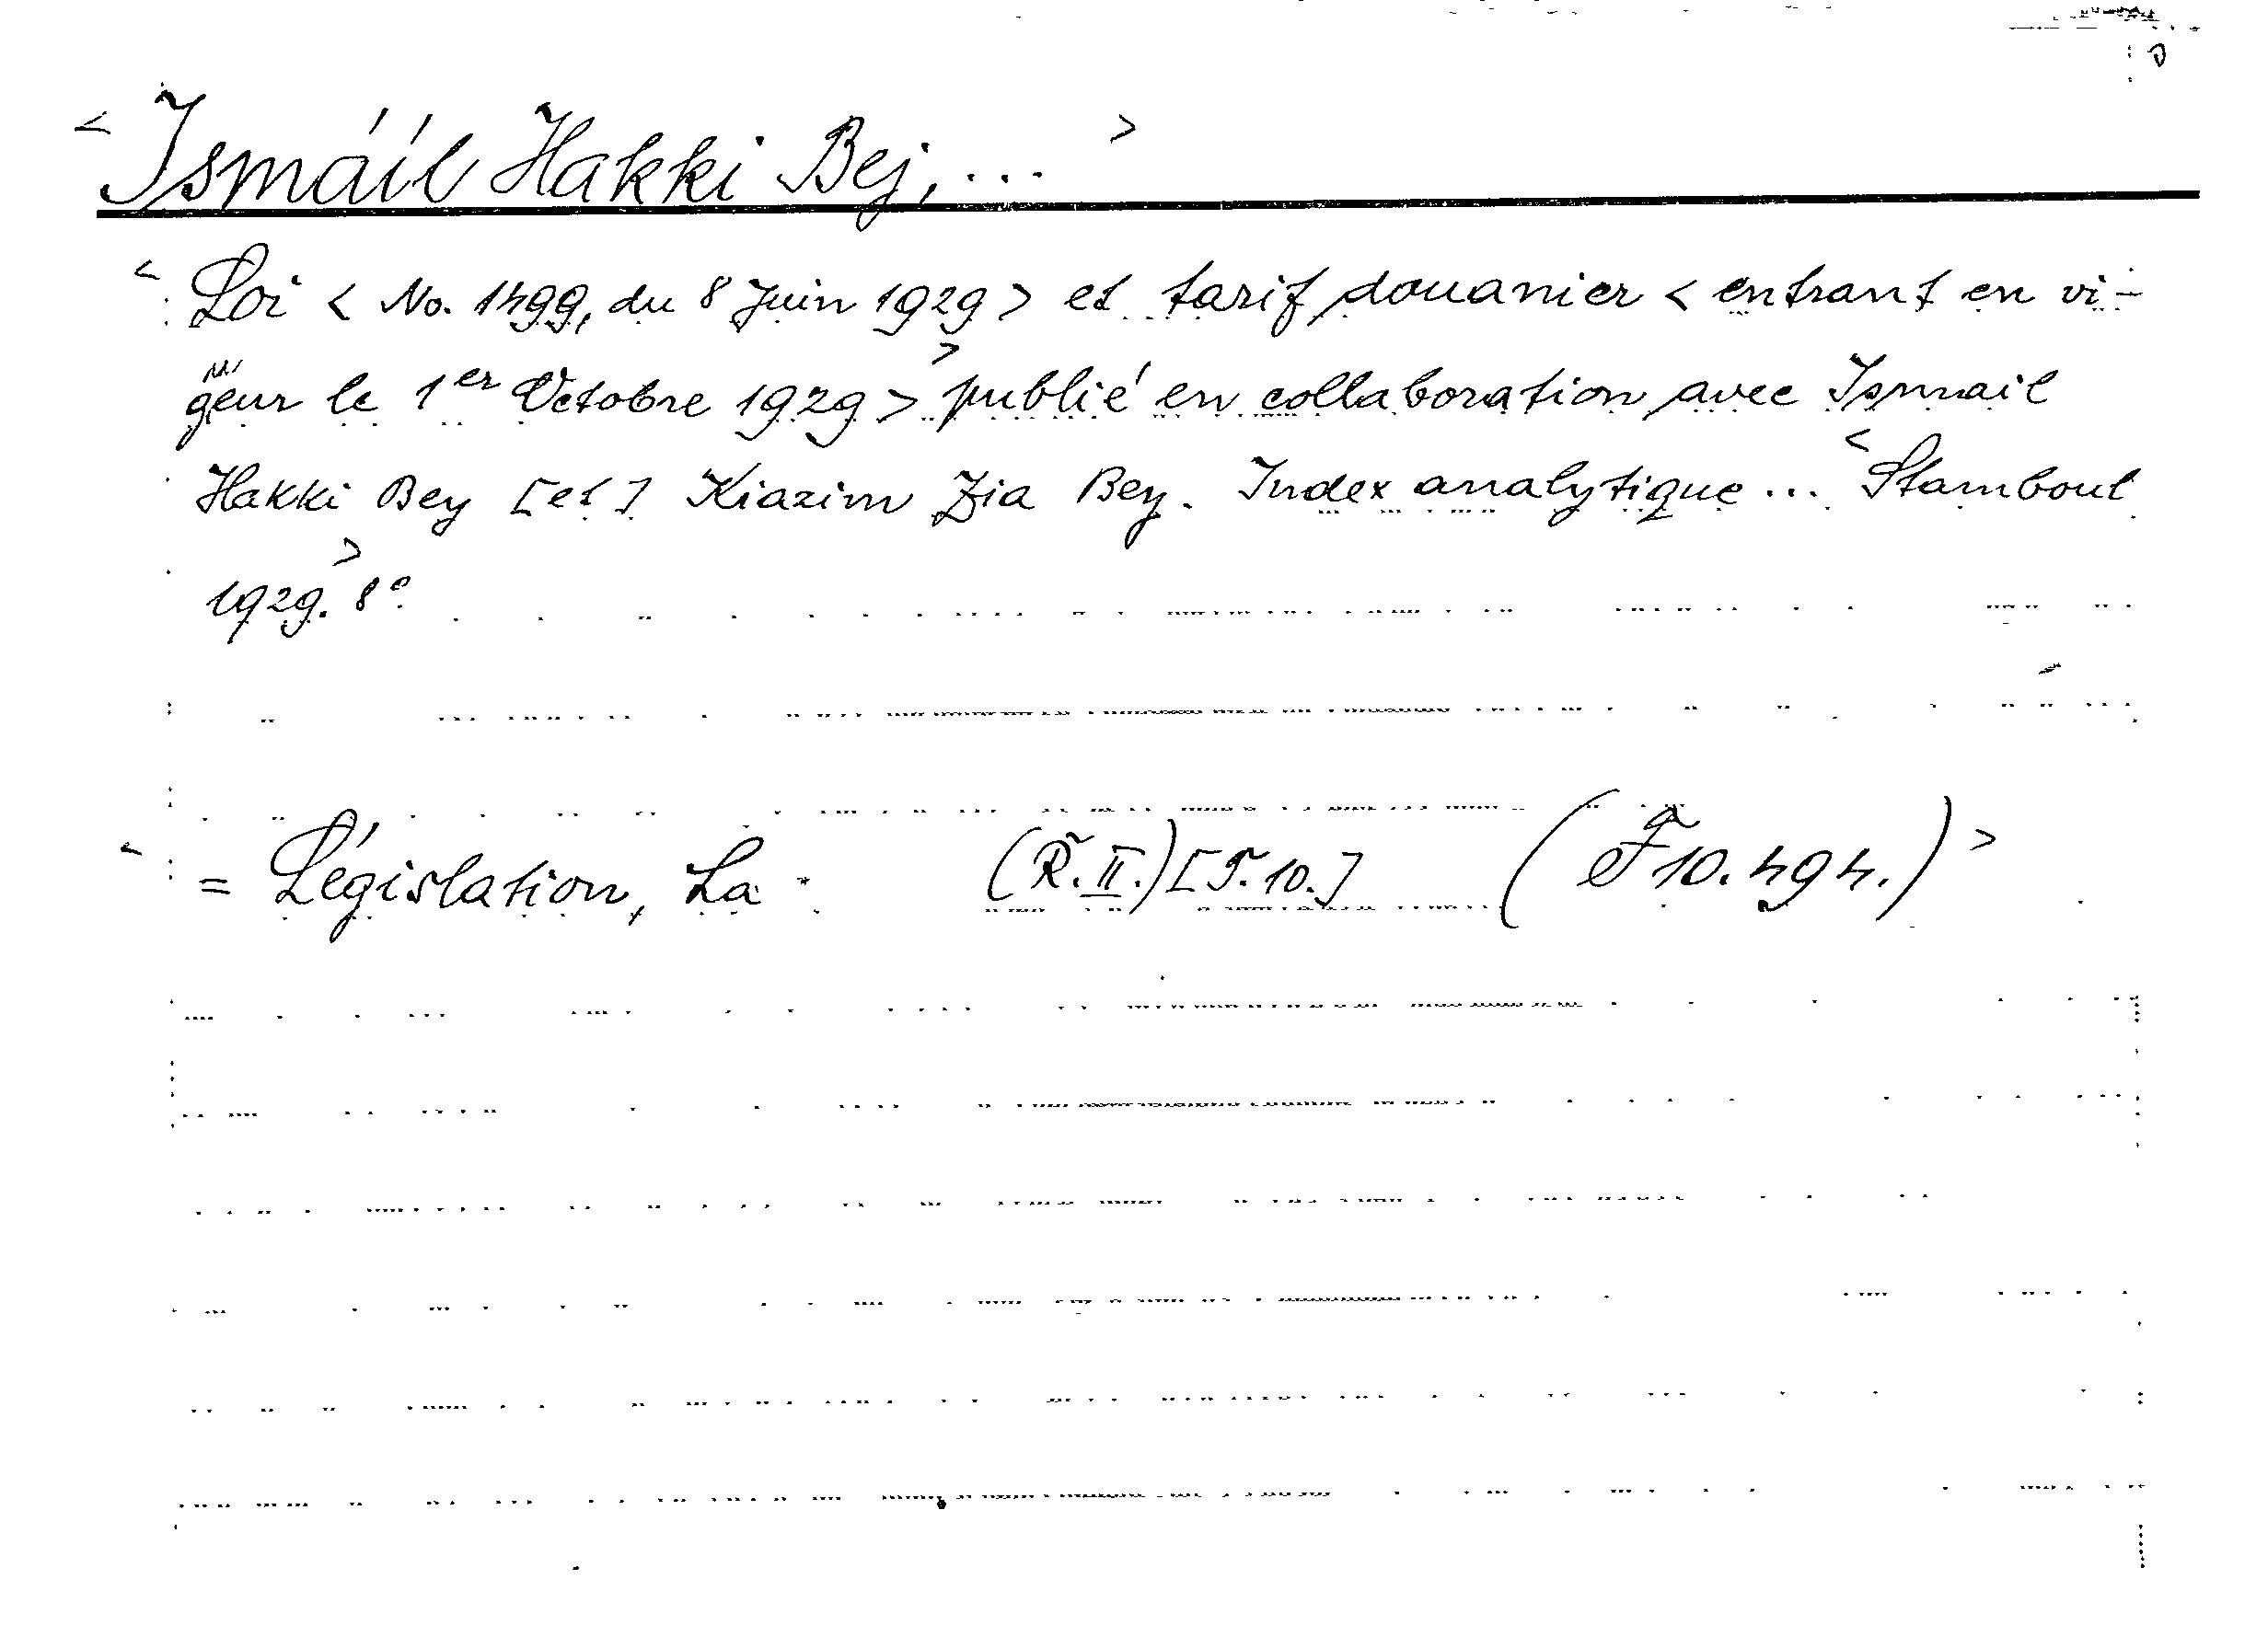 < Ismáíl Hakki Bej, ... >
< Loi < No. 1499, du 8 Juin 1929 > et tarif douanier < entrant en vi-
gueur le 1er Octobre 1929 > > publié en collaboration avec Ismail
Hakki Bey [et] Kiazim Zia Bey. Index analytique ... < Stamboul
1929. > 8°.
< = Législation, La. (R. II.) [T. 10.] (F 10.494.) >